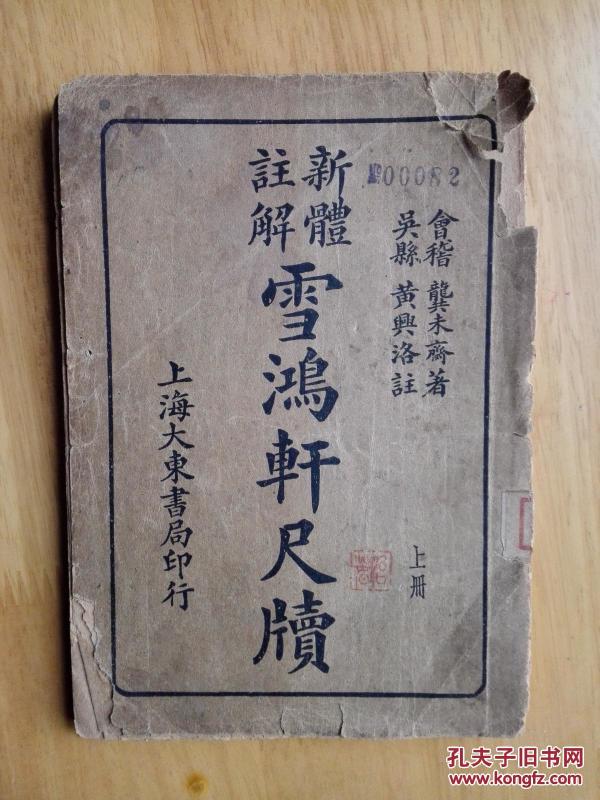 00082
會稽 龔未齋著
吳縣 黃興洛註
上冊
新體
註解
雪鴻軒尺牘
上海大東書局印行
孔夫子旧书网
www.kongfz.com